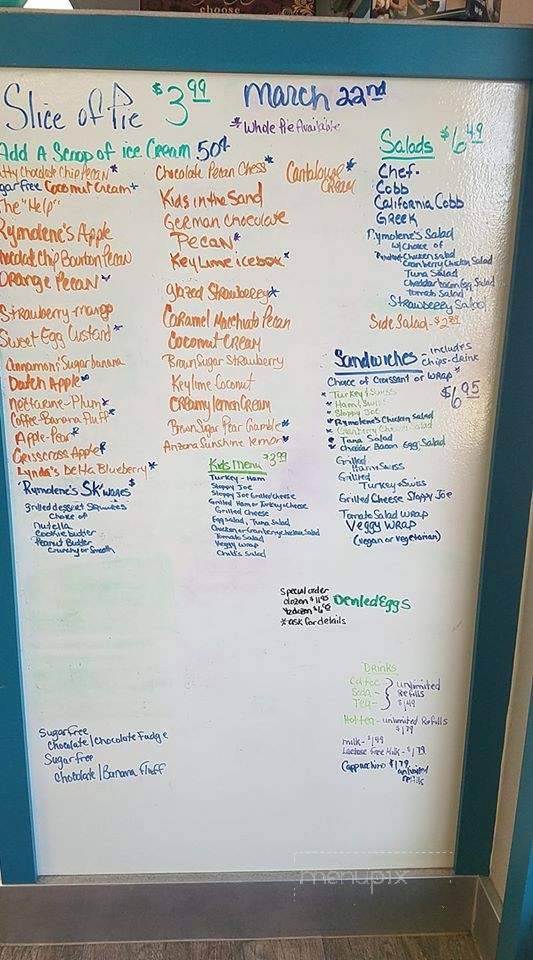 choose
Slice of Pie $3.99 March 22nd
*Whole Pie Available
Add A Scoop of ice Cream 50¢
Chocolate Chip Pecan*
Sugar free Coconut Cream*
The "Help"
Rymolene's Apple
Chocolate Chip Bourbon Pecan
Orange Pecan
Strawberry mango
Sweet Egg Custard*
Cinnamon; Sugar banana
Dutch Apple*
Nectarine-Plum*
Coffee-Banana Fluff*
Apple-Pear*
Crisscross Apple*
Lynda's Delta Blueberry*
Chocolate Pecan Chess*
Kids in the Sand
German Chocolate
Pecan*
Key lime icebox*
glazed Strawberry*
Caramel Macchiato Pecan
Coconut Cream
Brown Sugar Strawberry
Key lime Coconut
Creamy lemon Cream
Brown Sugar Pear Crumble*
Arizona Sunshine lemon*
Cantaloupe*
Cream
Salads $6.49
Chef-
Cobb
California Cobb
Greek
Rymolene's Salad
w/ choice of
Chicken Salad
Cranberry Chicken Salad
Tuna Salad
Cheddar bacon Egg Salad
Tomato Salad
Strawberry Salad
Side Salad-
Sandwiches - includes
chips-drink
Choice of Croissant or Wrap*
$6.95
* Turkey & Swiss
* Ham & Swiss
* Sloppy Joe
* Rymolene's Chicken Salad
* Cranberry Chicken Salad
* Tuna Salad
* Cheddar Bacon Egg Salad
Grilled
Ham & Swiss
Grilled
Turkey & Swiss
Grilled Cheese Sloppy Joe
Tomato Salad Wrap
Veggy Wrap
(vegan or vegetarian)
Kids Menu $3.99
Turkey - Ham
Sloppy Joe
Sloppy Joe Grilled Cheese
Grilled Ham or Turkey & Cheese
Grilled Cheese
Egg Salad, Tuna Salad
Chicken or Cranberry Chicken Salad
Tomato Salad
Veggy Wrap
Child's Salad
"Rymolene's SK'wares"
grilled dessert squares
Choice of
Nutella
Cookie butter
Peanut Butter
Crunchy or Smooth
Special order
dozen $11.95
1/2 dozen
*ask for details
Deviled Eggs
Drinks
Coffee
Soda -
Tea -
unlimited
Refills
$1.49
Hot tea - unlimited Refills
$1.79
milk - $1.49
Lactose Free Milk - $1.79
Cappuccino $1.79
unlimited
refills
Sugar free
Chocolate / Chocolate Fudge
Sugar free
Chocolate / Banana Fluff
menupix